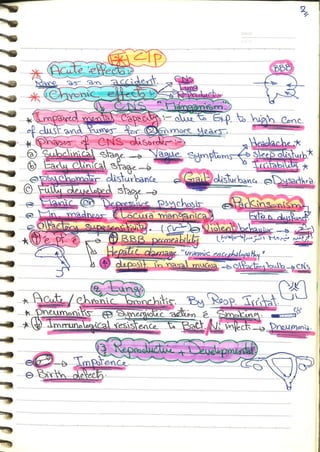 C/P
* Acute effect :-
Rare as an accident.
CNS
Lung
Reproductive
BBB
* Chronic effect :-
1 CNS "Manganism"
* Impaired mental Capacity :- due to Exp. to high Conc.
of dust and fumes for 2 or more years.
* phases of CNS disorder :-
Headache *
ⓐ Subclinical stage → Vague Symptoms Sleep disturb *
ⓑ Early clinical stage → Irritability *
⊖ psychomotor disturbance ⊖ Gait disturbance ⊖ Dysartheria
ⓒ Fully developed stage →
⊖ Manic or Depressive psychosis ⊖ Parkinsonism
⊖ Mn madness "Locura manganica"
⊖ Olfactory Supersensitivity ⊖ Violent behavior
↑ BBB permeability
Hepatic damage
deposit in nasal mucosa → olfactory bulb → CNS
2 Lung
* Acute / chronic bronchitis. By Resp. Irritat.
* pneumonitis ⊕ Synergistic action ē Smoking
* ↓ Immunological resistence to Bact. infect → Pneumonia.
3 Reproductive + Developmental
→ Impotence
⊖ Birth defects.